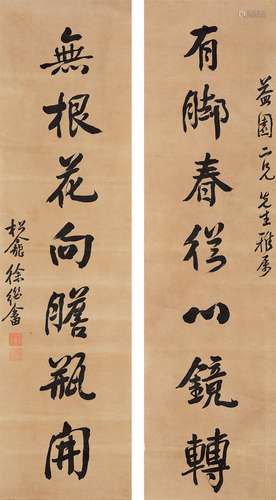 益園二兄先生雅属
有脚春從心鏡轉
無根花向膽瓶開
松龕徐繼畬